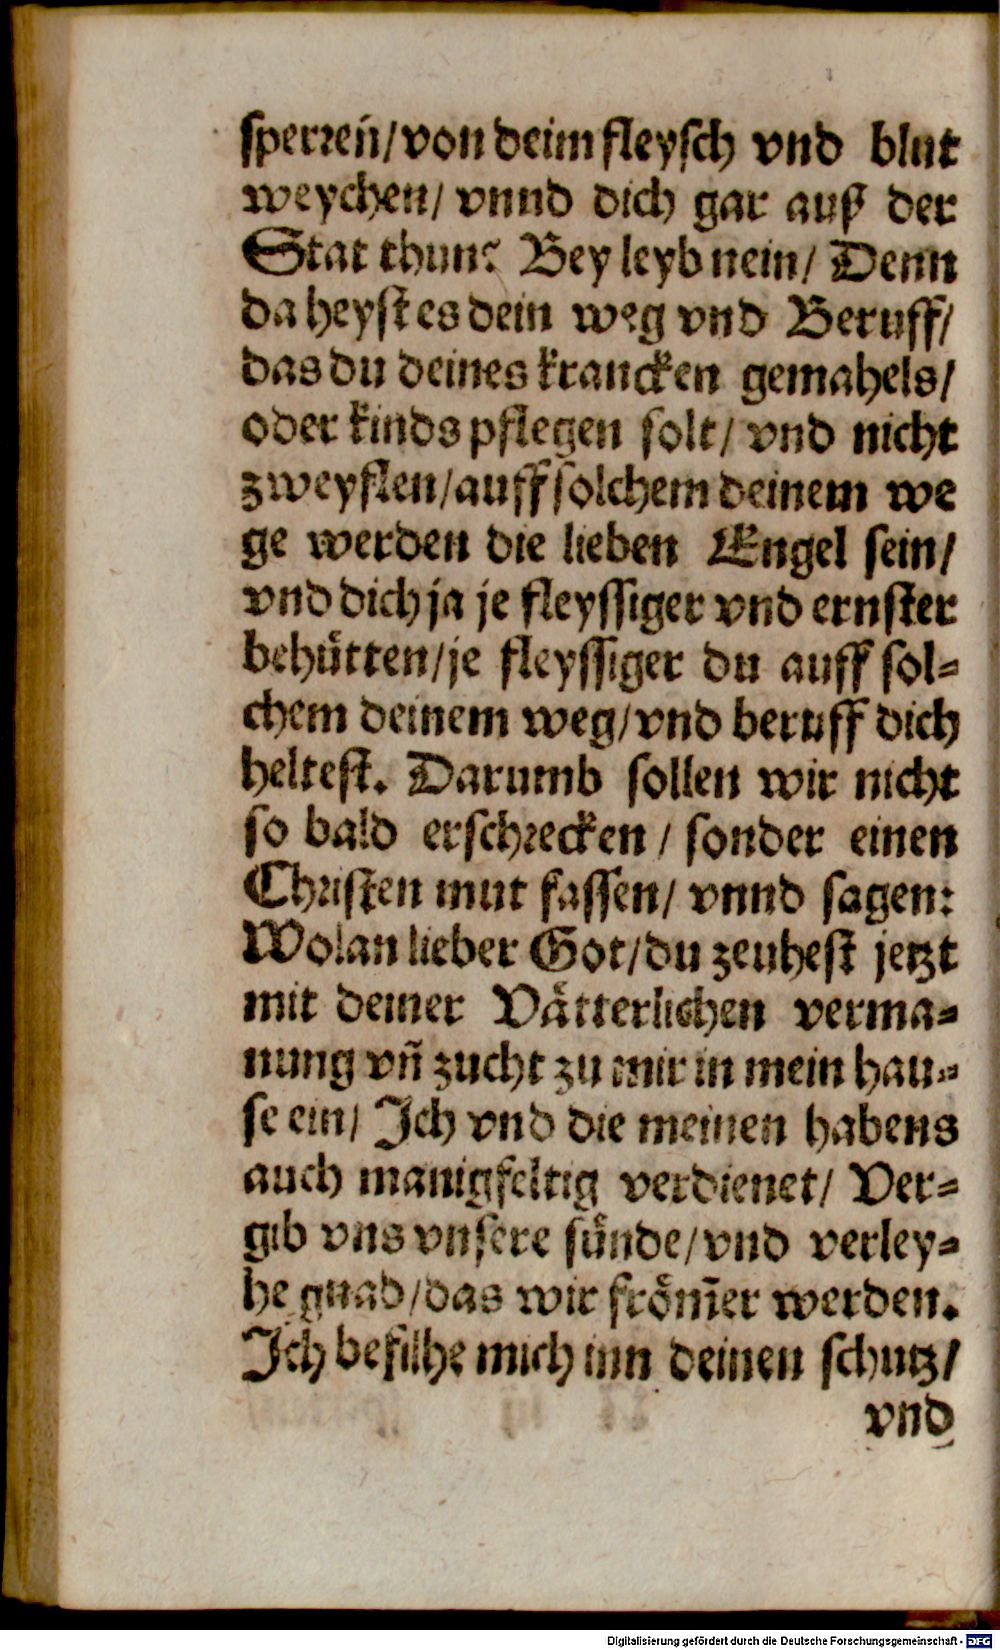 sperren̄/von deim fleysch vnd blut
weychen/ vnnd dich gar auß der
Stat thun? Bey leyb nein/ Denn
da heyst es dein weg vnd Beruff/
das du deines krancken gemahels/
oder kinds pflegen solt/ vnd nicht
zweyflen/auff solchem deinem we
ge werden die lieben Engel sein/
vnd dich ja je fleyssiger vnd ernster
behütten/je fleyssiger du auff sol=
chem deinem weg/vnd beruff dich
heltest. Darumb sollen wir nicht
so bald erschrecken/ sonder einen
Christen mut fassen/ vnnd sagen:
Wolan lieber Got/du zeuhest jetzt
mit deiner Vätterlichen verma=
nung vn̄ zucht zu mir in mein hau=
se ein/ Ich vnd die meinen habens
auch manigfeltig verdienet/ Ver=
gib vns vnsere sünde/vnd verley=
he gnad/das wir from̄er werden.
Ich befilhe mich inn deinen schutz/
vnd
Digitalisierung gefördert durch die Deutsche Forschungsgemeinschaft - DFG